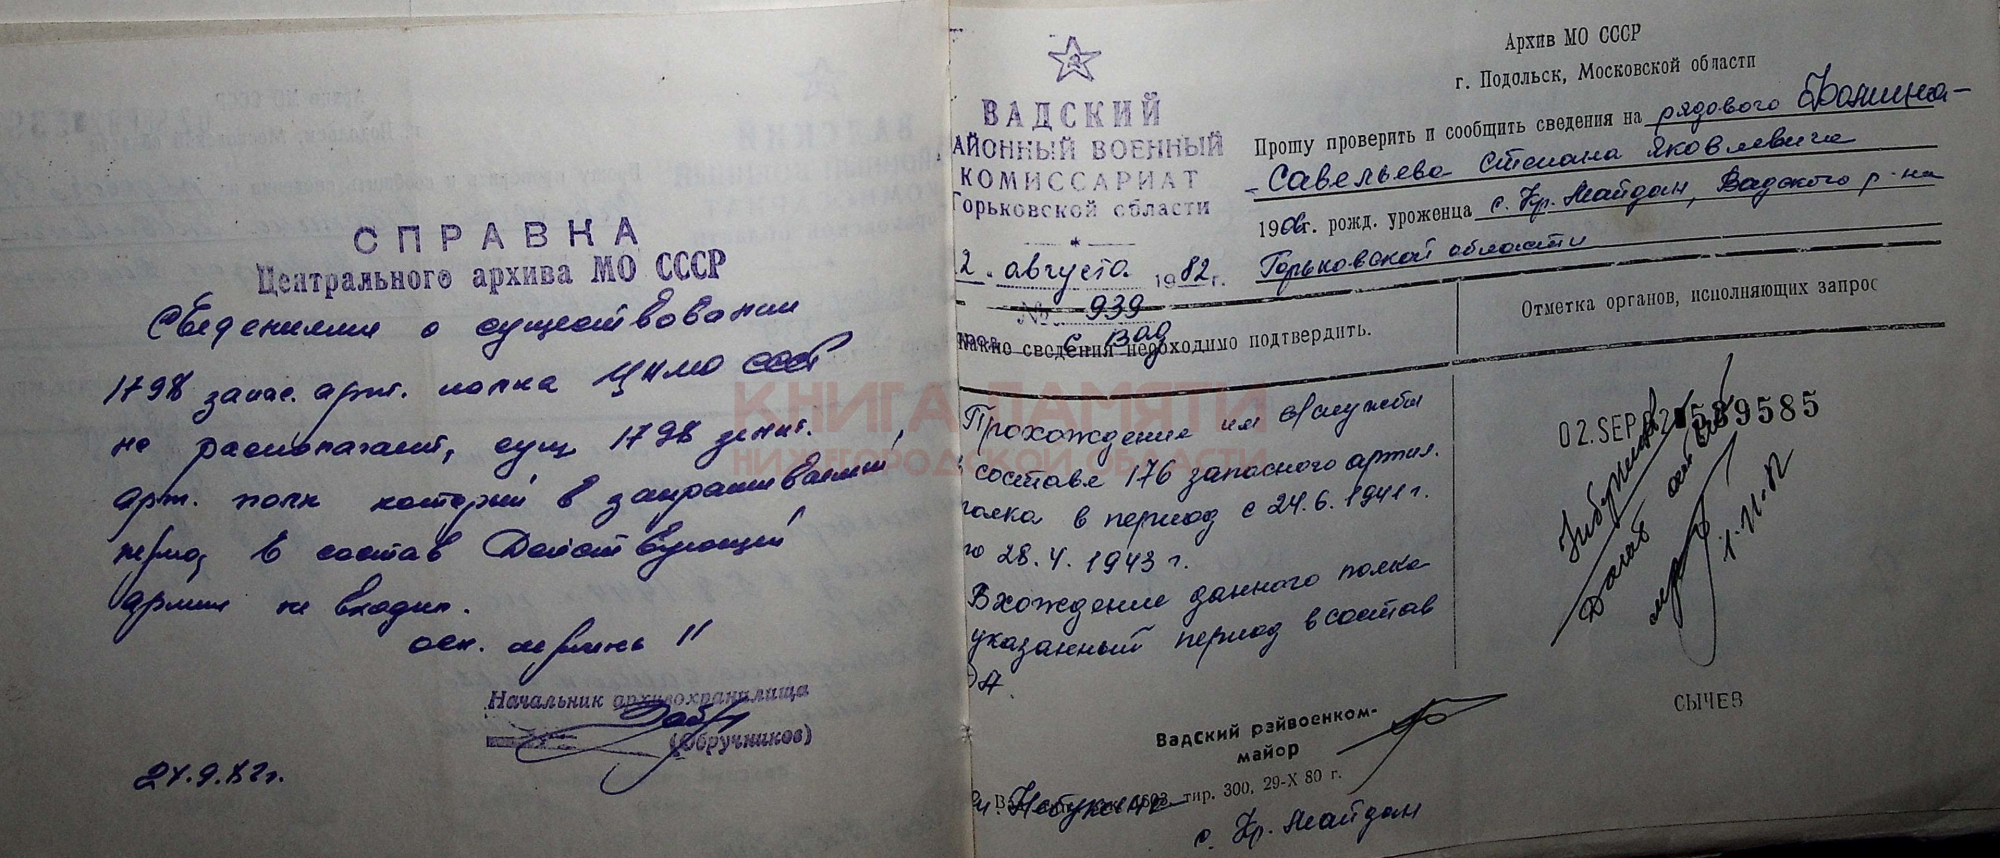 СПРАВКА
Центрального архива МО СССР
Сведениями о существовании
1798 запас. арт. полка ЦАМО СССР
не располагает, сущ. 1798 зенит.
арт. полк который в запрашиваемый
период в состав Действующей
армии не входил.
Начальник архивохранилища
(Обручников)
24.9.82г.
ВАДСКИЙ
АЙОННЫЙ ВОЕННЫЙ
КОМИССАРИАТ
Горьковской области
2. августа 1982г.
№ 939
с. Вад
Архив МО СССР
г. Подольск, Московской области
Прошу проверить и сообщить сведения на рядового Фомина-
-Савельева Степана Яковлевича
1906г. рожд. уроженца с. Кр. Майдан, Вадского р-на
Горьковской области
сведения необходимо подтвердить.
Отметка органов, исполняющих запрос
Прохождение им службы
составе 176 запасного артил.
полка в период с 24.6.1941г.
по 28.4.1943г.
Вхождение данного полка
указанный период в состав
ДА.
02.SEP.82 589585
1.11.82
СЫЧЕВ
Вадский райвоенком-
майор
тир. 300, 29-X 80 г.
с. Кр. Майдан
КНИГА ПАМЯТИ
НИЖЕГОРОДСКОЙ ОБЛАСТИ